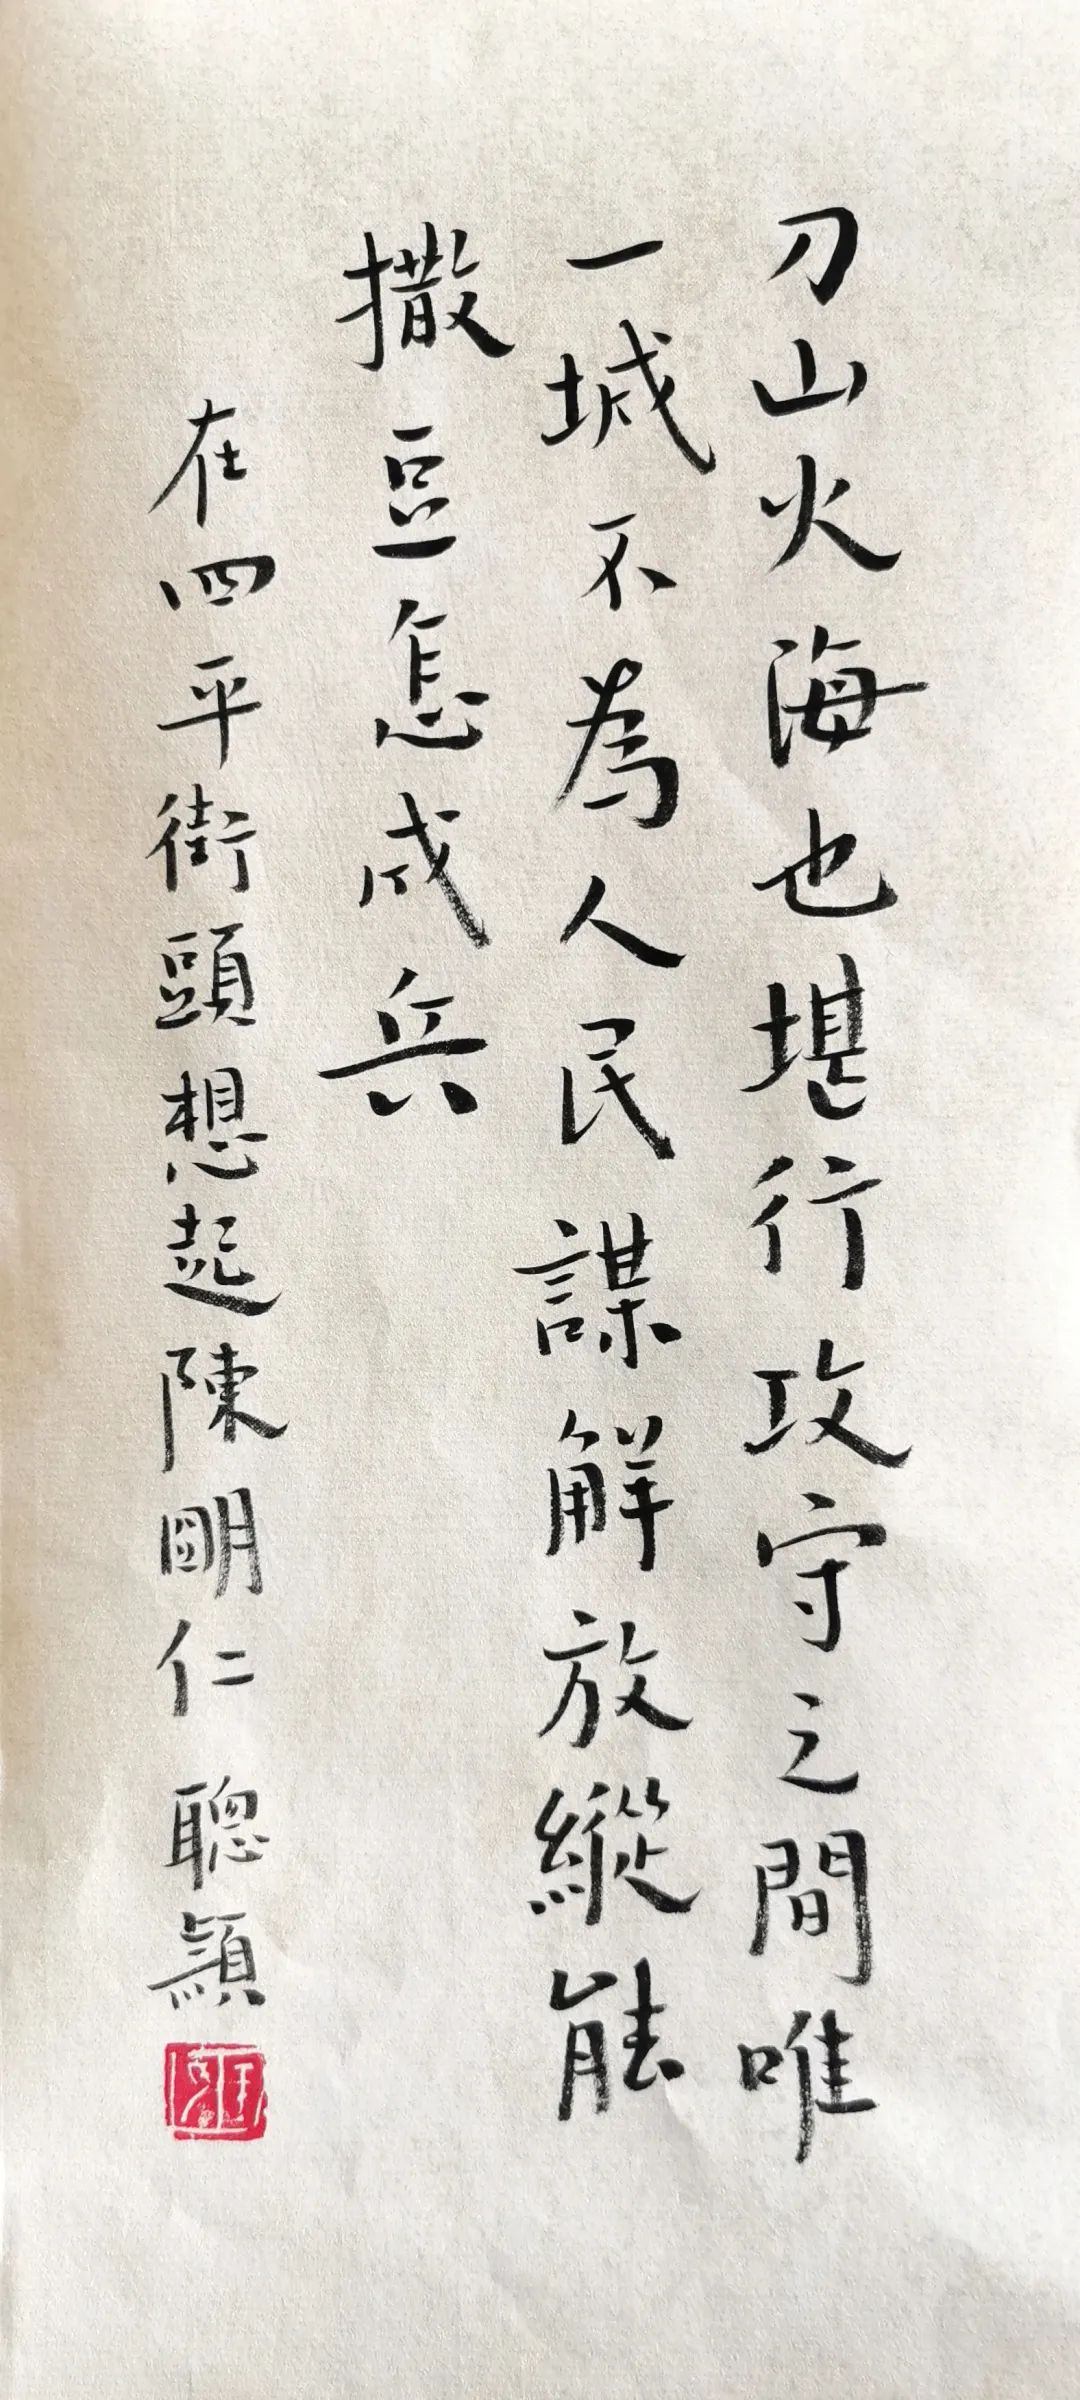 刀山火海也堪行攻守之間唯
一城不為人民謀解放縱能
撒豆怎成兵
在四平街頭想起陳明仁 聰穎